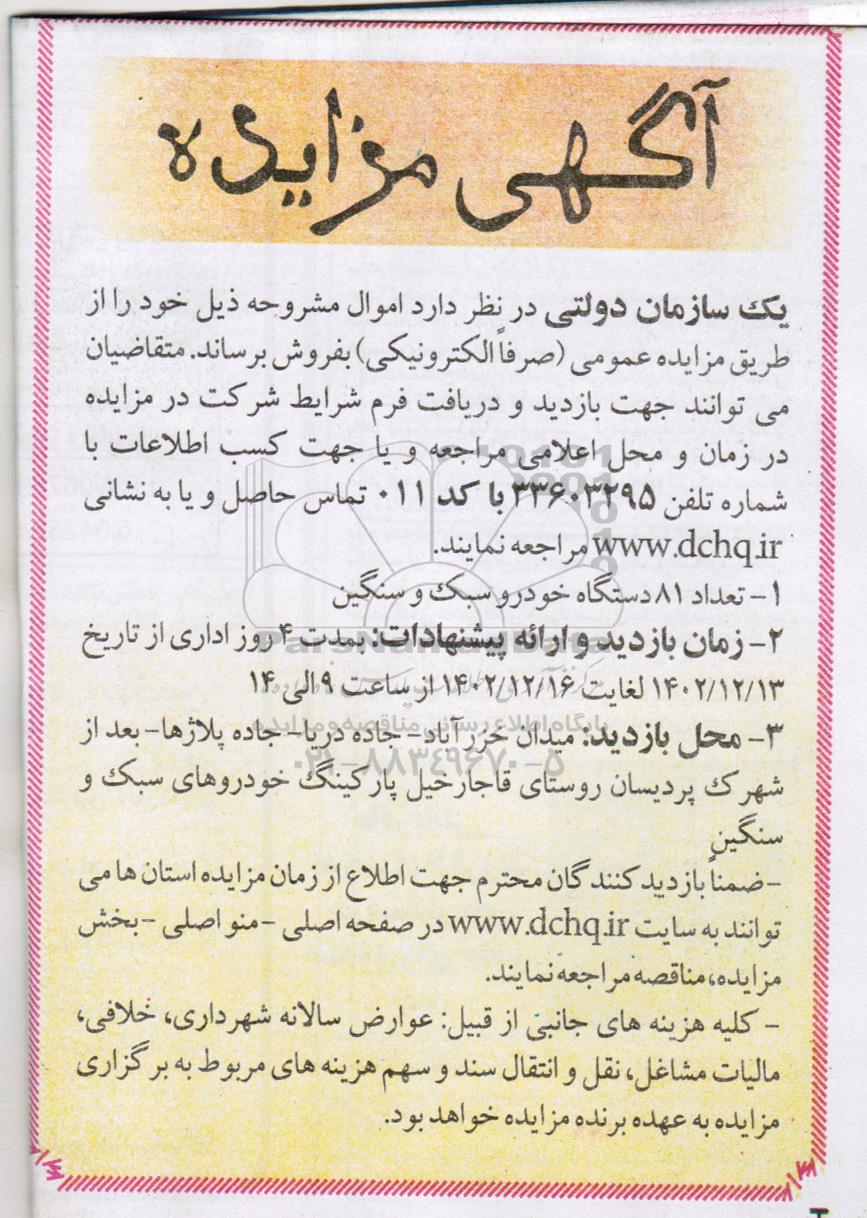 آگهی مزایده
یک سازمان دولتی در نظر دارد اموال مشروحه ذیل خود را از
طریق مزایده عمومی (صرفاً الکترونیکی) بفروش برساند. متقاضیان
می توانند جهت بازدید و دریافت فرم شرایط شرکت در مزایده
در زمان و محل اعلامی مراجعه و یا جهت کسب اطلاعات با
شماره تلفن ۳۳۶۰۳۲۹۵ با کد ۰۱۱ تماس حاصل و یا به نشانی
www.dchq.ir مراجعه نمایند.
۱- تعداد ۸۱ دستگاه خودرو سبک و سنگین
۲- زمان بازدید و ارائه پیشنهادات: بمدت ۴ روز اداری از تاریخ
۱۴۰۲/۱۲/۱۳ لغایت ۱۴۰۲/۱۲/۱۶ از ساعت ۹ الی ۱۴
۳- محل بازدید: میدان خزرآباد- جاده دریا- جاده پلاژها- بعد از
شهرک پردیسان روستای قاجارخیل پارکینگ خودروهای سبک و
سنگین
-ضمناً بازدید کنندگان محترم جهت اطلاع از زمان مزایده استان ها می
توانند به سایت www.dchq.ir در صفحه اصلی -منو اصلی -بخش
مزایده،مناقصه مراجعه نمایند.
- کلیه هزینه های جانبی از قبیل: عوارض سالانه شهرداری، خلافی،
مالیات مشاغل، نقل و انتقال سند و سهم هزینه های مربوط به برگزاری
مزایده به عهده برنده مزایده خواهد بود.
پایگاه اطلاع رسانی مناقصه و مزایده
۰۲۱-۸۸۳۴۹۶۷۰-۵